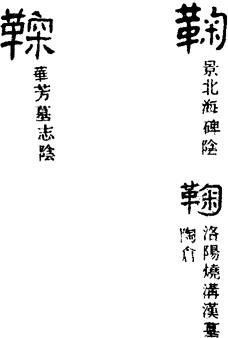 鞠
景北海碑陰
鞠
洛陽燒溝漢墓
陶
華芳墓志陰